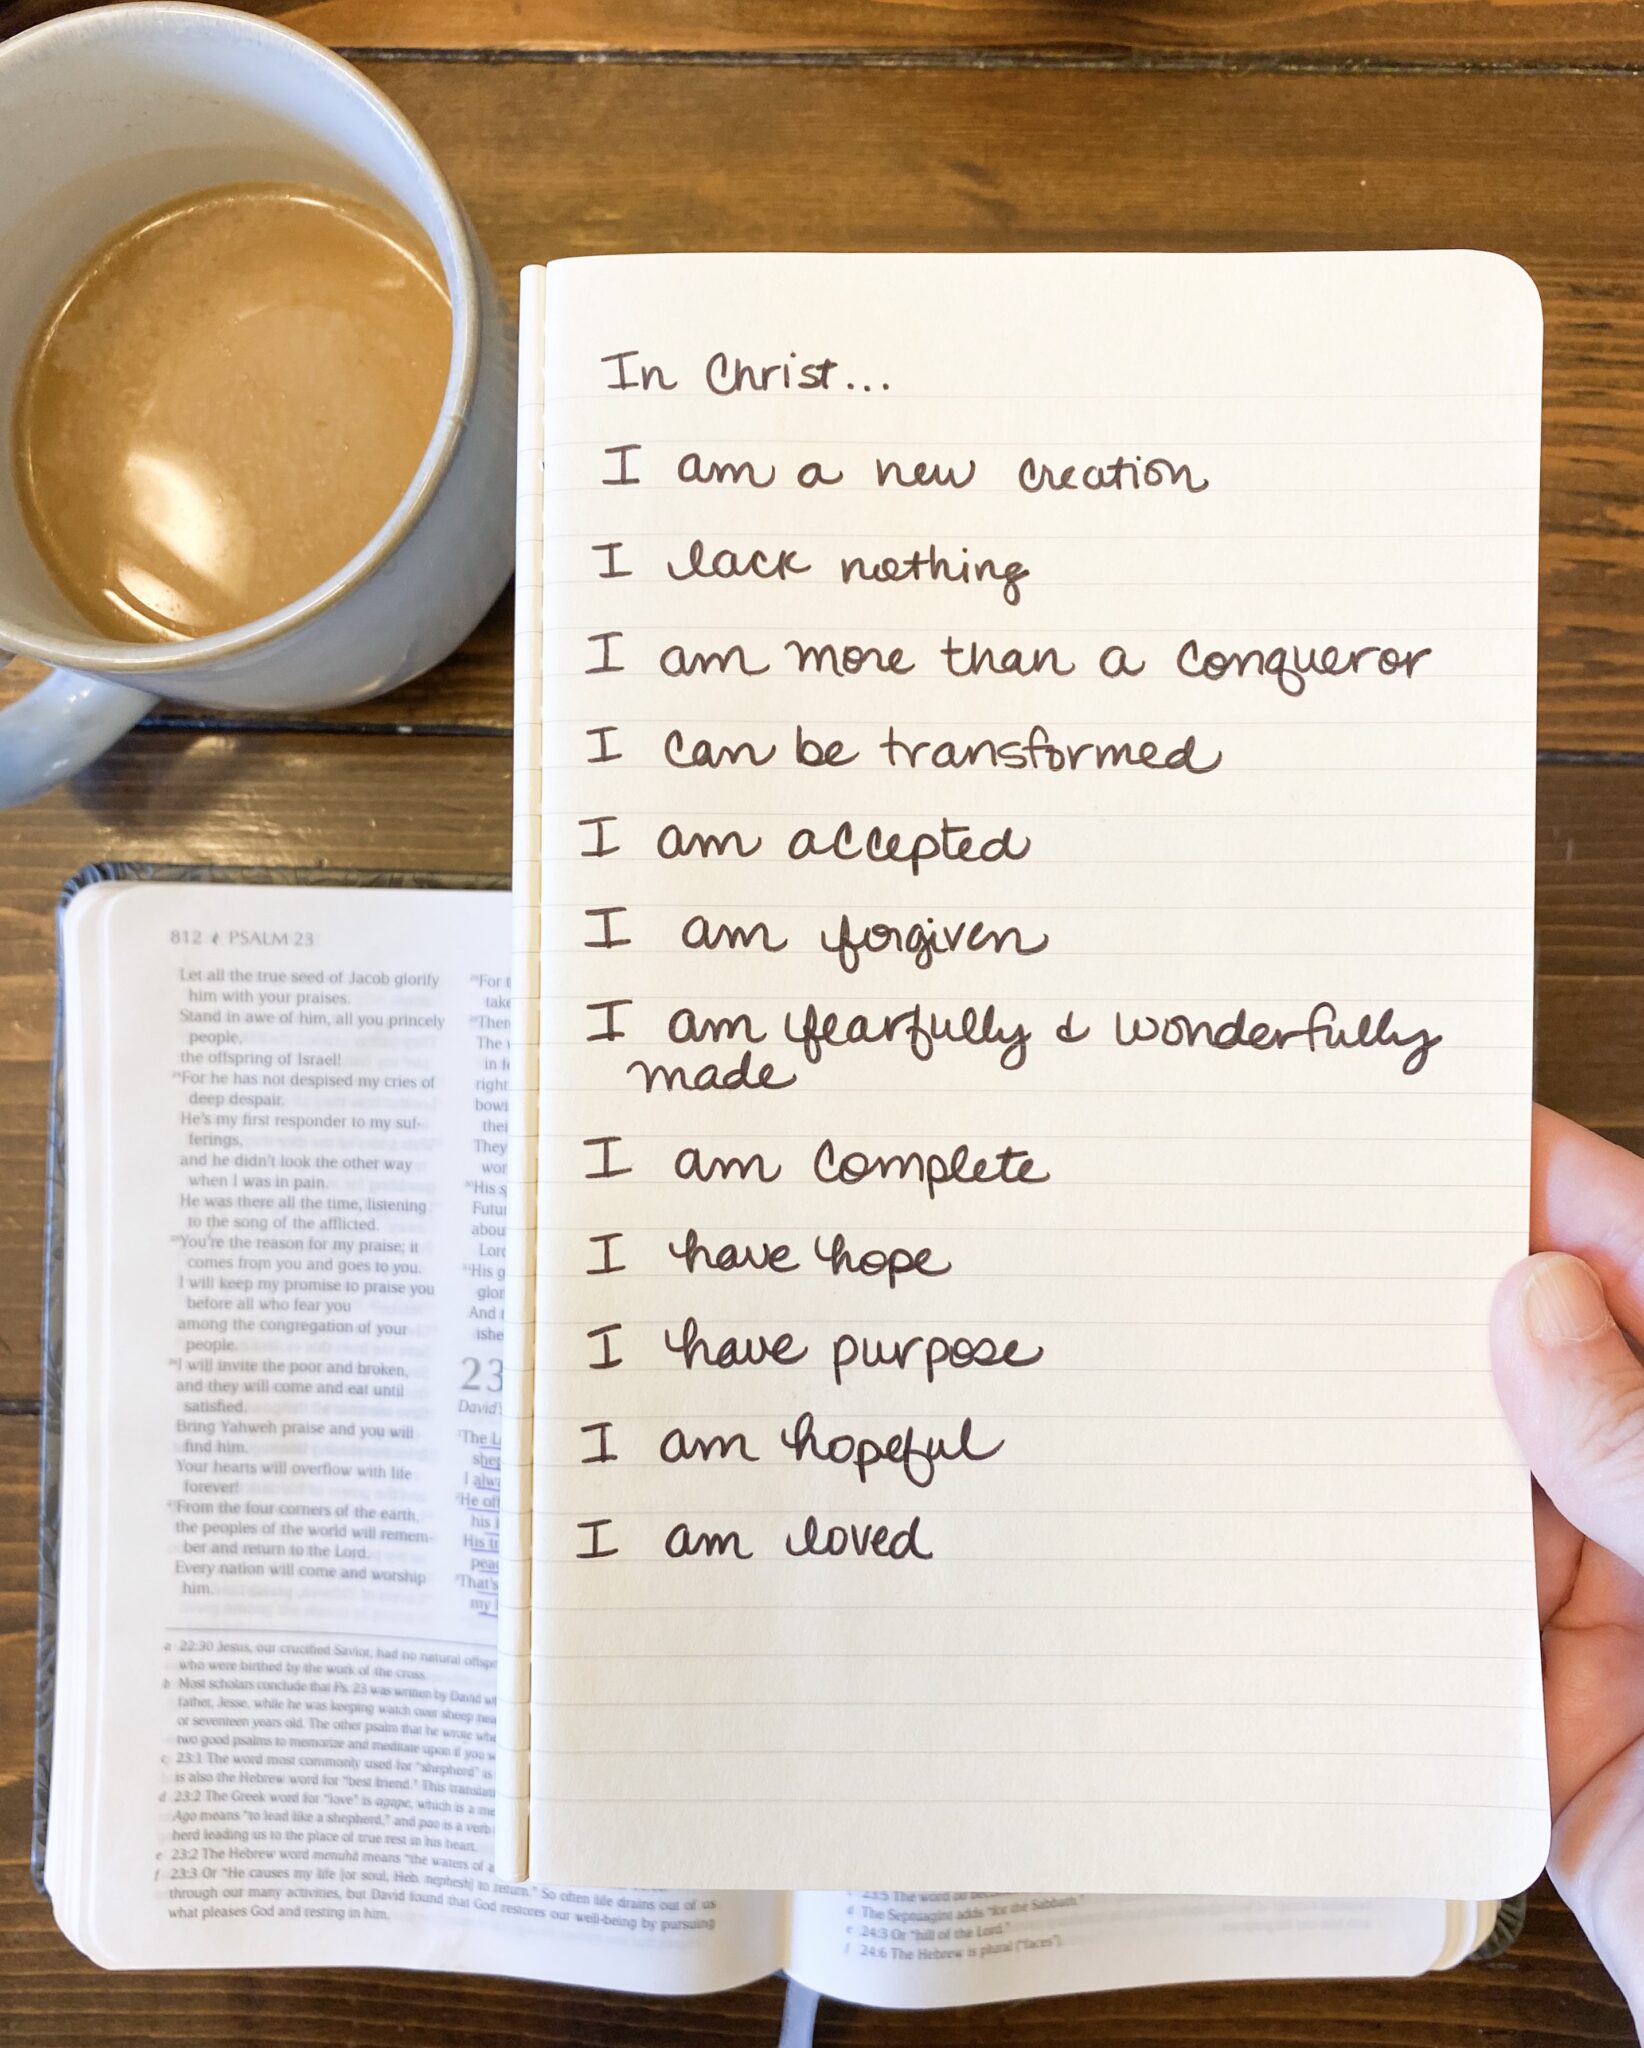 In Christ...
I am a new creation
I lack nothing
I am more than a conqueror
I can be transformed
I am accepted
I am forgiven
I am fearfully & wonderfully
made
I am complete
I have hope
I have purpose
I am hopeful
I am loved
812 PSALM 23
Let all the true seed of Jacob glorify
him with your praises.
Stand in awe of him, all you princely
people,
the offspring of Israel!
24For he has not despised my cries of
deep despair.
He's my first responder to my suf-
ferings,
and he didn't look the other way
when I was in pain.
He was there all the time, listening
to the song of the afflicted.
25You're the reason for my praise; it
comes from you and goes to you.
I will keep my promise to praise you
before all who fear you
among the congregation of your
people.
26I will invite the poor and broken,
and they will come and eat until
satisfied.
Bring Yahweh praise and you will
find him.
Your hearts will overflow with life
forever!
27From the four corners of the earth,
the peoples of the world will remem-
ber and return to the Lord.
Every nation will come and worship
him.
28For
take
29Then
The
in
right
bowi
thei
They
wor
30His s
Futur
about
Lord
31His g
glor
And t
ishe
23
David'
1The L
shep
I alwa
2He off
his l
His tr
peac
3That's
my l
a 22:30 Jesus, our crucified Savior, had no natural offspr
who were birthed by the work of the cross.
b Most scholars conclude that Ps. 23 was written by David w
father, Jesse, while he was keeping watch over sheep nea
or seventeen years old. The other psalm that he wrote whe
two good psalms to memorize and meditate upon if you w
c 23:1 The word most commonly used for "shepherd" is
is also the Hebrew word for "best friend." This translati
d 23:2 The Greek word for "love" is agape, which is a me
Ago means "to lead like a shepherd," and pao is a verb
herd leading us to the place of true rest in his heart.
e 23:2 The Hebrew word menuhâ means "the waters of a
f 23:3 Or "He causes my life [or soul, Heb. nephesh] to return." So often life drains out of us
through our many activities, but David found that God restores our well-being by pursuing
what pleases God and resting in him.
23:5 The word
d The Septuagint adds "for the Sabbath."
e 24:3 Or "hill of the Lord."
f 24:6 The Hebrew is plural ("faces").